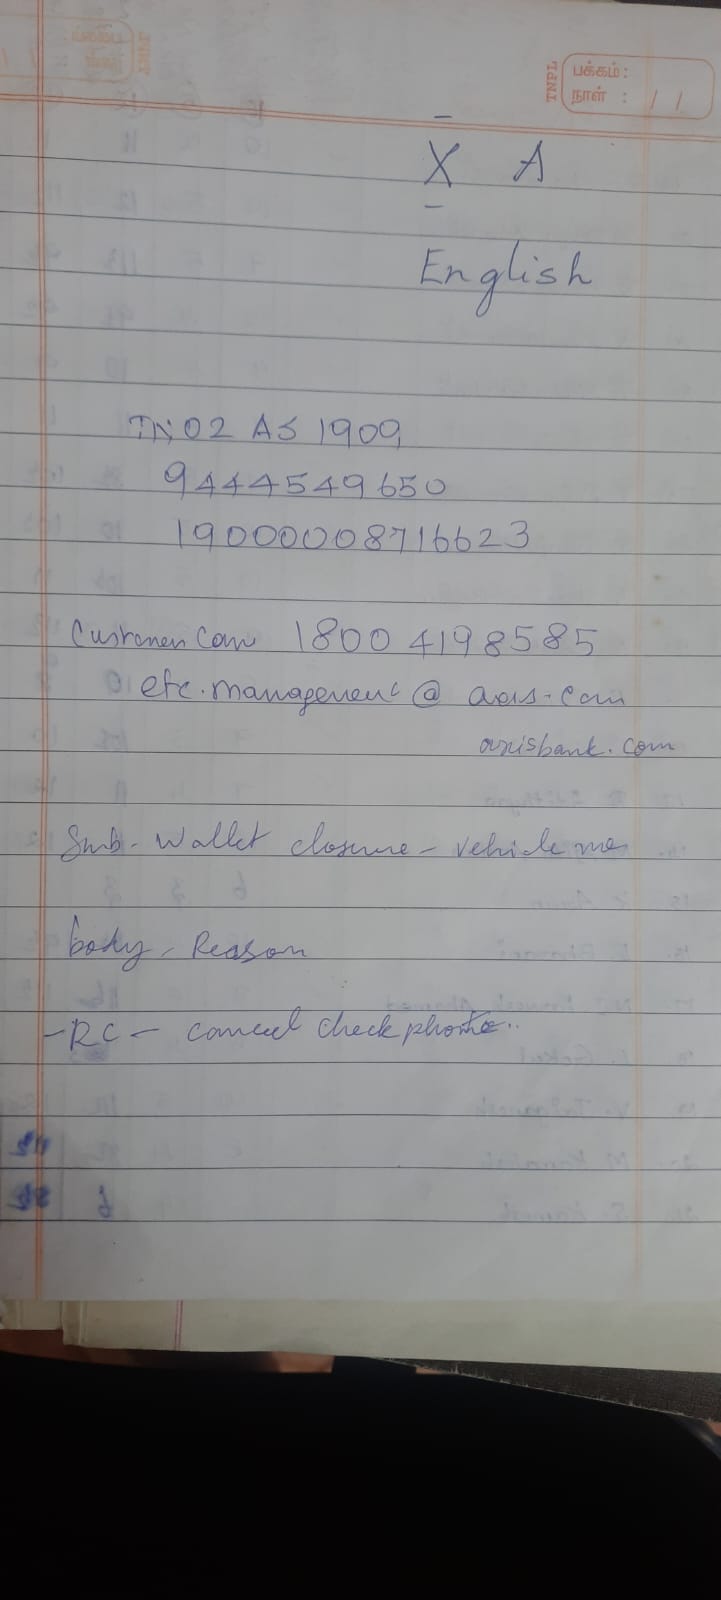 TNPL
பக்கம் :
நாள் : / /
X A
English
TN 02 AS 1909
9444549650
19000008716623
Customer Care 1800 4198585
etc.management @ axis.com
axisbank.com
Sub - Wallet closure - vehicle no
body - Reason
- RC - cancel check photo..